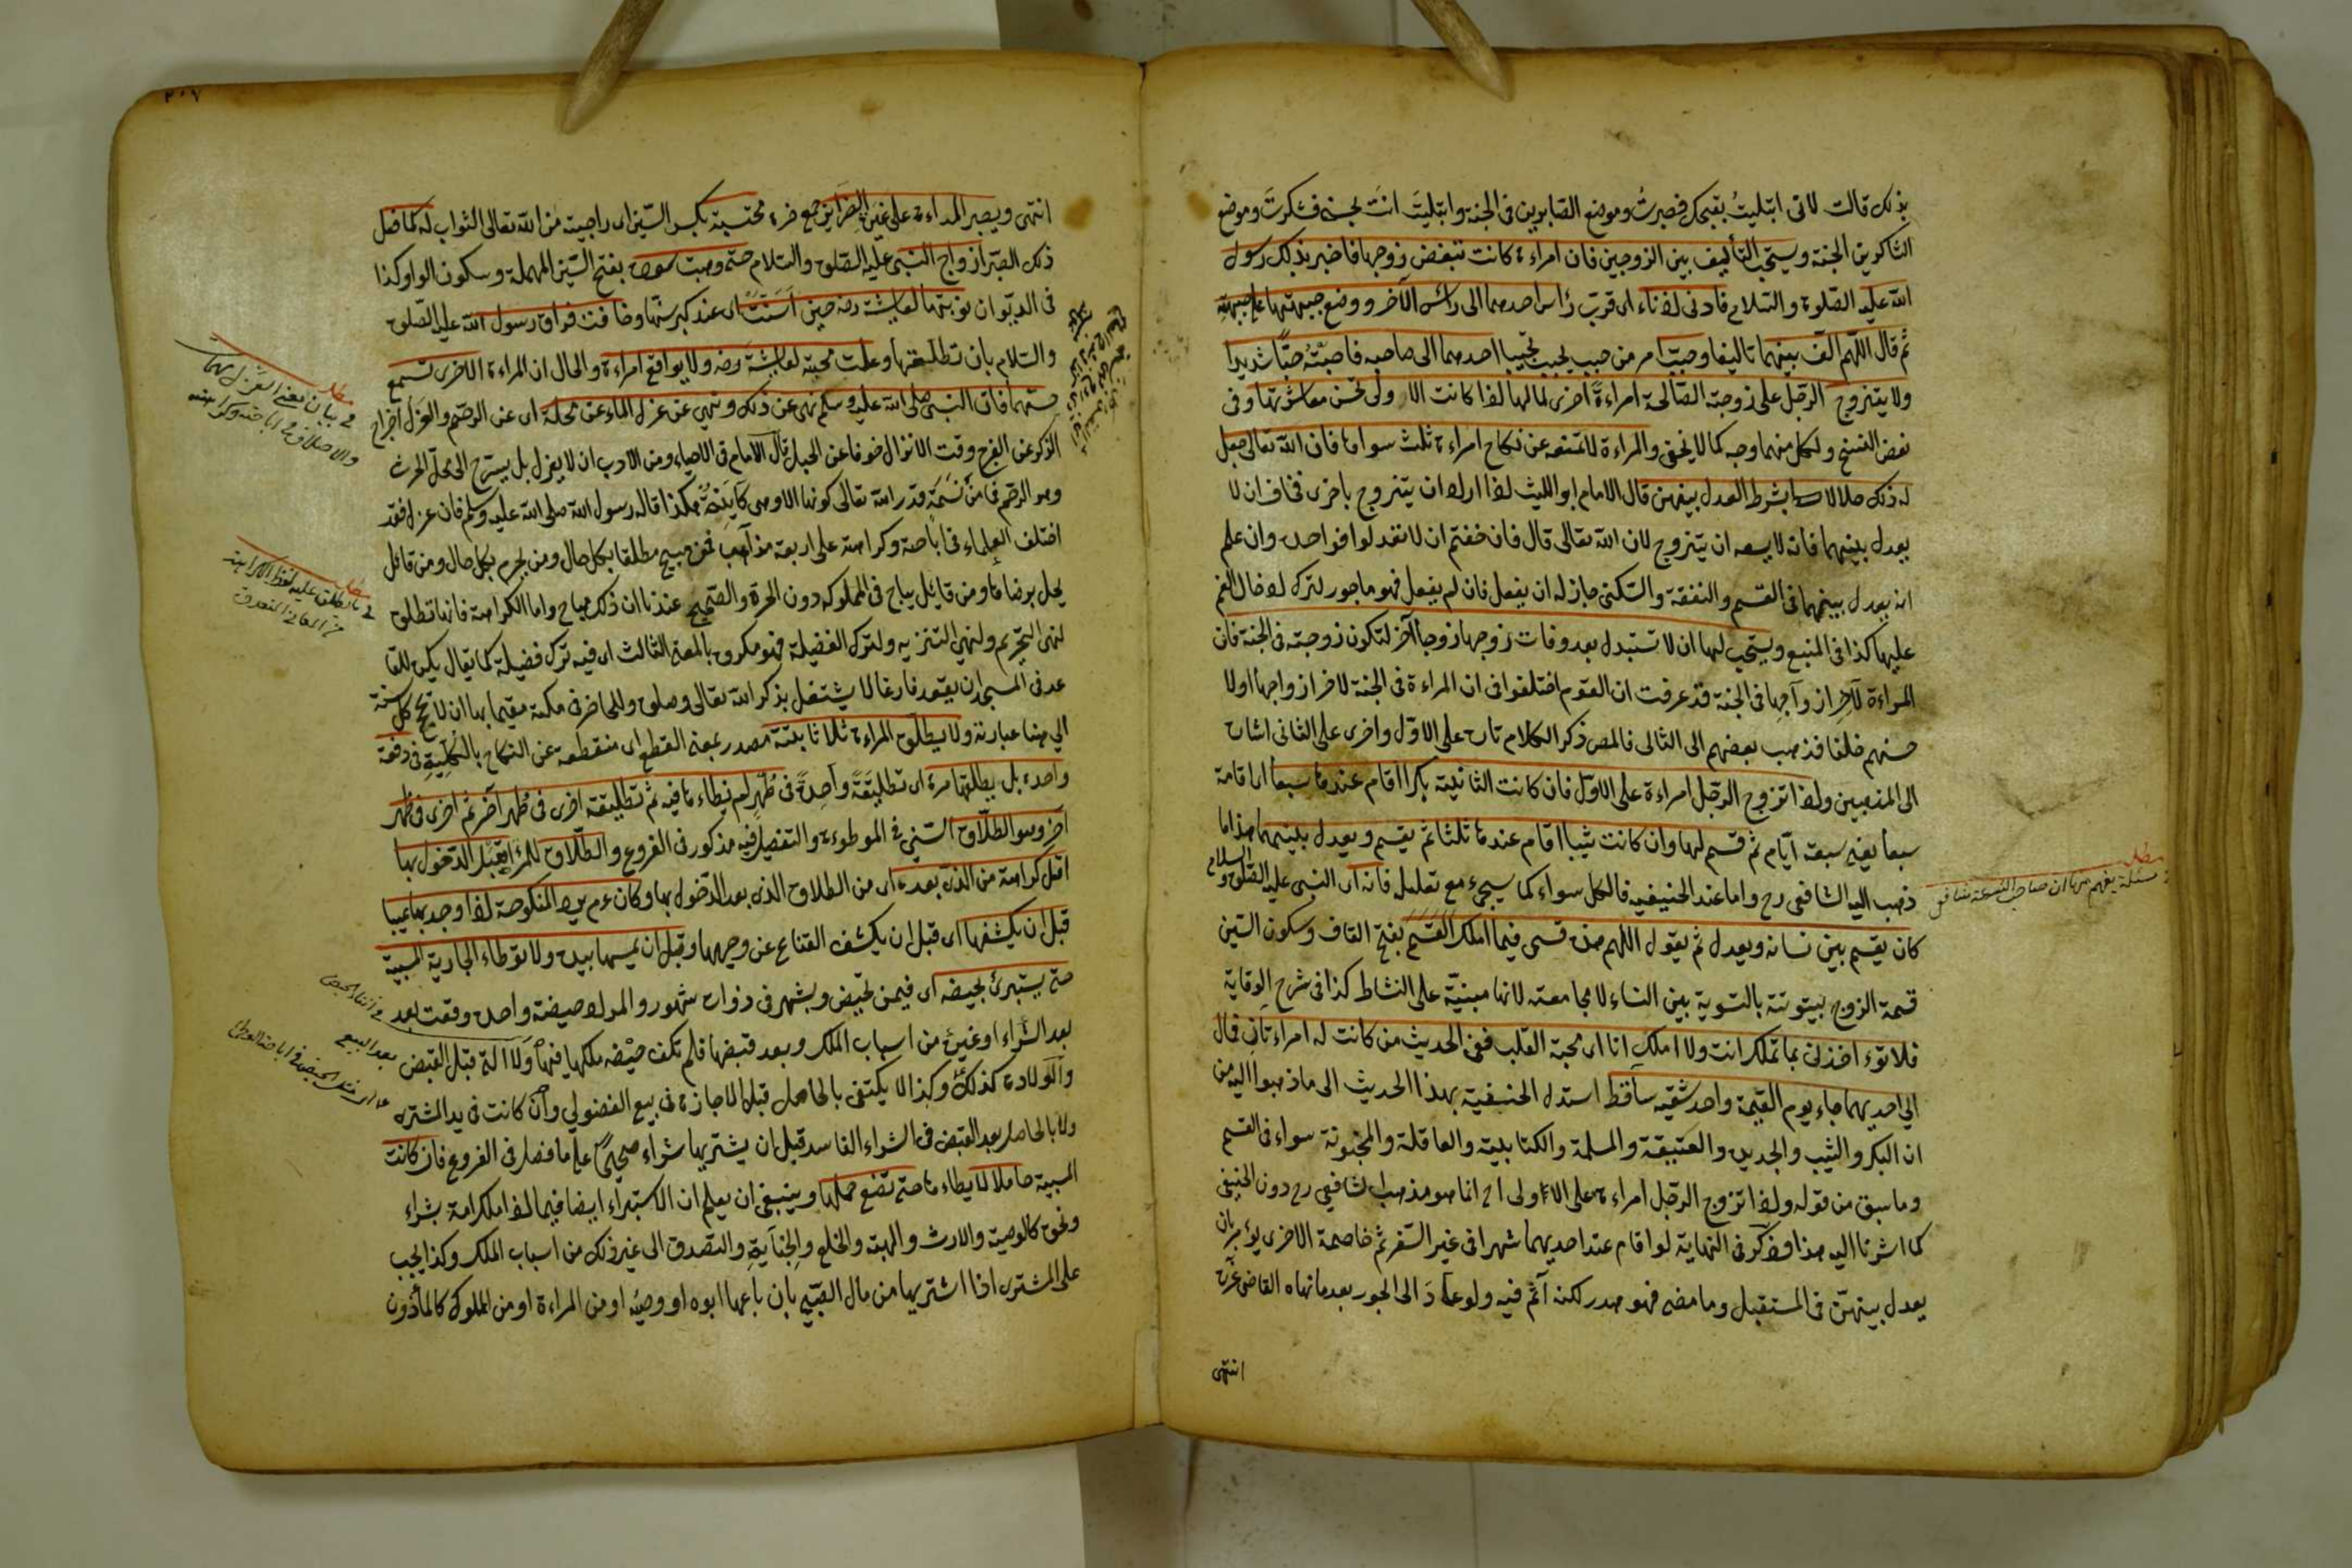 بذلك قالت لانى ابتليت بقبحك فصبرت وموضع الصابرين فى الجنة وابتليت انت بحسنى فشكرت وموضع
الشاكرين الجنة ويستحب التأليف بين الزوجين فان امراءة كانت تبغض زوجها فاخبر بذلك رسول
الله عليه الصلوة والسلام فادنى لاذناء اى قرب رأس احدهما الى رأس الآخر ووضع جبهتها على جبهته
ثم قال اللهم الف بينهما تاليفا وحبب امر من حبب يحبب تحبيبا احدهما الى صاحبه فاحبته حبا شديدا
ولا يتزوج الرجل على زوجته الصالحة امراءة اخرى لمالها اذا كانت الاولى تحسن معاشرتها وفى
بعض النسخ ولكل منهما وجه كما لا يخفى والمراءة لا تمنعه عن نكاح امراءة ثلث سواها فان الله تعالى جعل
له ذلك حلالا بشرط العدل بينهن قال الامام ابو الليث اذا اراد ان يتزوج باخرى فخاف ان لا
يعدل بينهما فانه لا يسعه ان يتزوج لان الله تعالى قال فان خفتم ان لا تعدلوا فواحدة وان علم
انه يعدل بينهما فى القسم والنفقة والسكنى جاز له ان يفعل فان لم يفعل فهو ماجور لترك ادخال الغم
عليها كذا فى المنبع ويستحب لها ان لا تستبدل بعد وفات زوجها زوجا آخر لتكون زوجته فى الجنة فان
المراءة لآخر ازواجها فى الجنة قد عرفت ان القوم اختلفوا فى ان المراءة فى الجنة لاخر ازواجها او لا
حسنهم خلقا فذهب بعضهم الى الثانى فالمص ذكر الكلام تارة على الاول واخرى على الثانى اشارة
الى المذهبين واذا تزوج الرجل امراءة على الاول فان كانت الثانية بكرا اقام عندها سبعا اى اقامة
سبعا يعنى سبعة ايام ثم قسم لها وان كانت ثيبا اقام عندها ثلثا ثم يقسم ويعدل بينهما هذا ما
ذهب اليه الشافعى رح واما عند الحنيفيه فالكل سواء كما سيجىء مع تعليله فانه اى النبى عليه الصلوة والسلام
كان يقسم بين نسائه ويعدل ثم يقول اللهم هذه قسمى فيما املك القسم بفتح القاف وسكون السين
قسمة الزوج بيتوتة بالتسوية بين النساء لا مجامعته لانها مبنية على النشاط كذا فى شرح الوقاية
فلا تؤاخذنى بما تملك انت ولا املك انا اى محبة القلب ففى الحديث من كانت له امراءتان فمال
الى احديهما جاء يوم القيمة واحد شقيه ساقط استدل الحنفية بهذا الحديث الى ما ذهبوا اليه من
ان البكر والثيب والجديدة والعتيقة والمسلمة والكتابية والعاقلة والمجنونة سواء فى القسم
وما سبق من قوله واذا تزوج الرجل امراءة على الاولى اخ انما هو مذهب الشافعى رح دون الحنفى
كما اشرنا اليه هذا وذكر فى النهاية لو اقام عند احديهما شهرا فى غير السفر ثم خاصمة الاخرى يؤمر بان
يعدل بينهن فى المستقبل وما مضى فهو هدر لكنه آثم فيه ولو عاد الى الجور بعد ما نهاه القاضى عزره
انتهى
مطلب
مسئلة يفهم منها ان صاحب الشرعة شافعى
٢٠٧
انتهى ويصبر المراءة على غيرة الضرائر جمع ضرة محتسبة بكسر السين اى راجية من الله تعالى الثواب له كما فعل
ذلك الصبر ازواج النبى عليه الصلوة والسلام حتى وهبت سودة بفتح السين المهملة وسكون الواو كذا
فى الديوان نوبتها لعايشة رضه حين اسنت اى عند كبر سنها وخافت فراق رسول الله عليه الصلوة
والسلام بان تطلقها وعلمت محبته لعايشة رضه ولا يواقع امراءة والحال ان المراءة الاخرى تسمع
حسهما فان النبى صلى الله عليه وسلم نهى عن ذلك ونهى عن عزل الماء عن محله اى عن الرحم والعزل اخراج
الذكر عن الفرج وقت الانزال خوفا عن الحبل قال الامام فى الاحياء ومن الادب ان لا يعزل بل يسرح الى محل الحرث
وهو الرحم فما من نسمة قدر الله تعالى كونها الا وهى كاينة هكذا قاله رسول الله صلى الله عليه وسلم فان عزل فقد
اختلف العلماء فى اباحته وكراهته على اربعة مذاهب فمن مبيح مطلقا بكل حال ومن محرم بكل حال ومن قائل
يحل برضاها ومن قائل يباح فى المملوكه دون الحرة والصحيح عندنا ان ذلك مباح واما الكراهة فانها تطلق
لنهى التحريم ولنهى التنزيه ولترك الفضيلة فهو مكروه بالمعنى الثالث اى فيه ترك فضيلة كما يقال يكره للقا
عد فى المسجد ان يقعد فارغا لا يشتغل بذكر الله تعالى وصلوة وللحاضر فى مكة مقيما بها ان لا يحج كل سنة
الى هنا عبارته ولا يطلق المراءة ثلاثا بتة مصدر بمعنى القطع اى منقطعه عن النكاح بالكلية فى دفعة
واحدة بل يطلقها مرة اى تطليقة واحدة فى طهر لم يطاءها فيه ثم تطليقة اخرى فى طهر آخر ثم اخرى فى طهر
آخر وهو الطلاق السنى فى الموطوءة والتفصيل فيه مذكور فى الفروع والطلاق للمراءة قبل الدخول بها
اقل كراهة من الذى بعده اى من الطلاق الذى بعد الدخول بها وكان ءم يرد المنكوحة اذا وجد بها عيبا
قبل ان يكشفها اى قبل ان يكشف القناع عن وجهها وقبل ان يمسها بيده ولا توطاء الجارية المسبية
حتى يستبرئ بحيضه اى فيمن تحيض وبشهر فى ذوات شهور والمراد حيضة واحدة وقعت بعد
بعد الشراء او غيره من اسباب الملك وبعد قبضها فلم تكف حيضه ملكها فيها ولا التى قبل القبض
والولادة كذلك وكذا لا يكتفى بالحاصل قبل الاجازة فى بيع الفضولى وان كانت فى يد المشترى
ولا بالحاصل بعد القبض فى الشراء الفاسد قبل ان يشتريها شراء صحيحا على ما فصل فى الفروع فان كانت
المسبية حاملا لا يطاءها حتى تضع حملها وينبغى ان يعلم ان الاستبراء ايضا فيما اذا ملك امة بشراء
ونحوه كالوصية والارث والهبة والخلع والجناية والتصدق الى غير ذلك من اسباب الملك وكذا يجب
على المشترى اذا اشتريها من مال الصبى بان باعها ابوه او وصيه او من المراءة او من المملوك كالمأذون
مطلب
فى بيان معنى العزل
والاختلاف فى اباحته وكراهته
مطلب
فى ما يطلق عليه لفظ الكراهة
من المعانى
بعد البيع